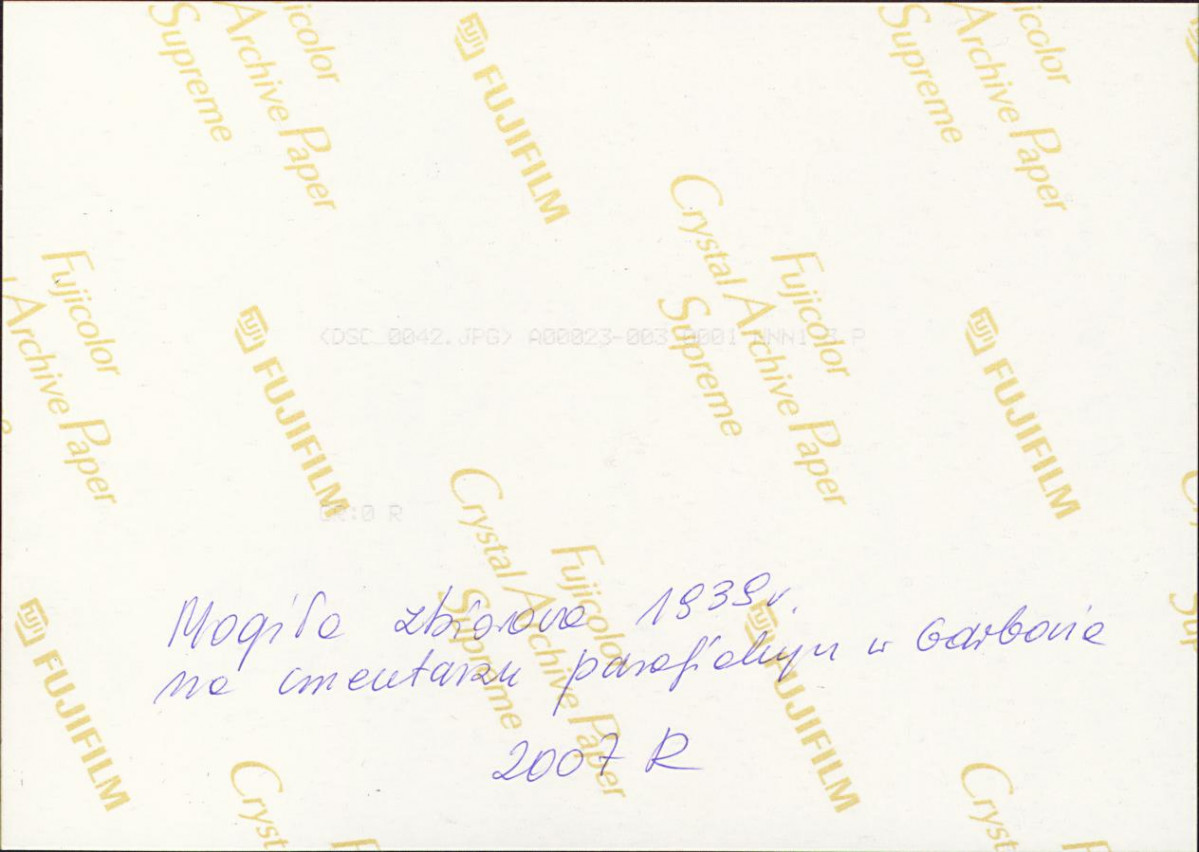 Fujicolor
Crystal Archive Paper
Supreme
FUJIFILM
<DSC_0042.JPG> A00023-003 0001 NNN1 P
:0 R
Mogiła zbiorowa 1939 r.
na cmentarzu parafialnym w Garbowie
2007 R